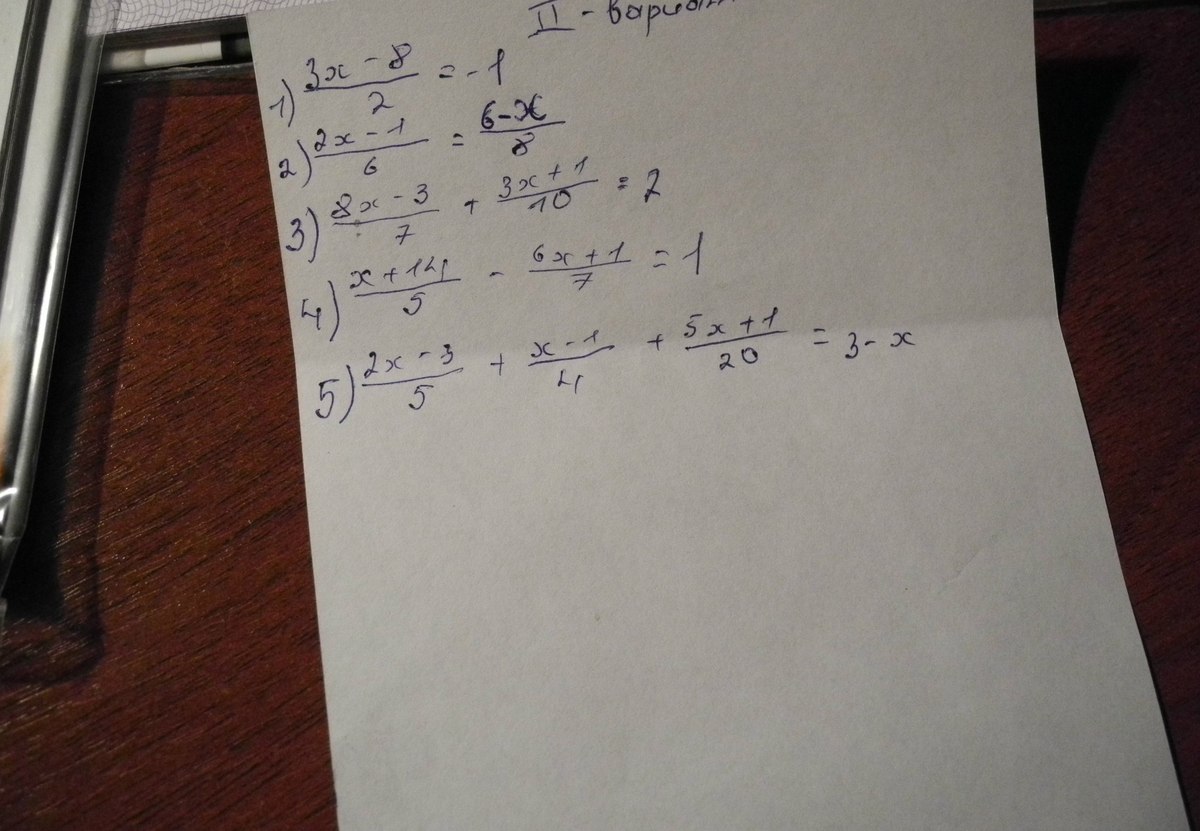 II - вариант
1) (3x - 8)/2 = -1
2) (2x - 1)/6 = (6-x)/8
3) (8x - 3)/7 + (3x + 1)/10 = 2
4) (x + 14)/5 - (6x + 1)/7 = 1
5) (2x - 3)/5 + (x - 1)/4 + (5x + 1)/20 = 3 - x